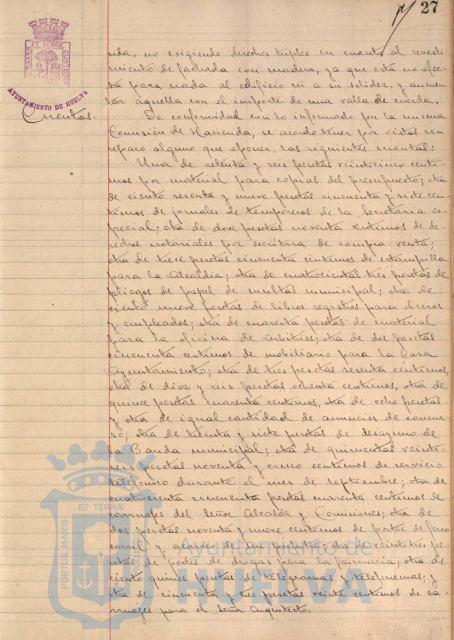 27
AYUNTAMIENTO DE HUELVA
nida, no exigiendo derechos triples en cuanto al revesti-
miento de fachada con madera, ya que esta no afec-
ta para nada al edificio ni a su solidez, y aumen-
tar aquella con el importe de una valla de cuerda.
Cuentas.
De conformidad con lo informado por la misma
Comisión de Hacienda, se acordó tener por vistas sin
reparo alguno que oponer, las siguientes cuentas:
Una de setenta y seis pesetas veinticinco centi-
mos por material para copias del presupuesto; otra
de ciento noventa y nueve pesetas cincuenta y siete cen-
timos de jornales de temporeros de la Secretaria es-
pecial; otra de doce pesetas noventa centimos de de-
rechos notariales por escritura de compra venta;
otra de trece pesetas cincuenta centimos de estampilla
para la Alcaldia; otra de cuatrocientas tres pesetas de
pliegos de papel de multas municipal; otra de
ciento nueve pesetas de libros registros para obreros
y empleados; otra de cuarenta pesetas de material
para la oficina de Arbitrios; otra de dos pesetas
cincuenta centimos de mobiliario para la Casa
Ayuntamiento; otra de tres pesetas sesenta centimos,
otra de diez y seis pesetas ochenta centimos, otra de
quince pesetas cuarenta centimos, otra de ocho pesetas
y otra de igual cantidad de anuncios de
otra de treinta y siete pesetas de desayuno de
la Banda municipal; otra de quinientas veinti-
seis pesetas noventa y cinco centimos de servicio
telefónico durante el mes de septiembre; otra de
cuatrocientas cincuenta pesetas noventa centimos de
carruajes del Señor Alcalde y Comisiones; otra de
dos pesetas noventa y nueve centimos de portes de ferro
carril y acarreo de otra de veintitres pe-
setas de portes de drogas para la farmacia; otra de
ciento quince pesetas de telegramas y telefonemas; y
otra de cincuenta y tres pesetas veinte centimos de ca-
rruajes para el Señor Arquitecto.
PORTUS MARIS ET TERRAE
Ayuntamiento de
HUELVA